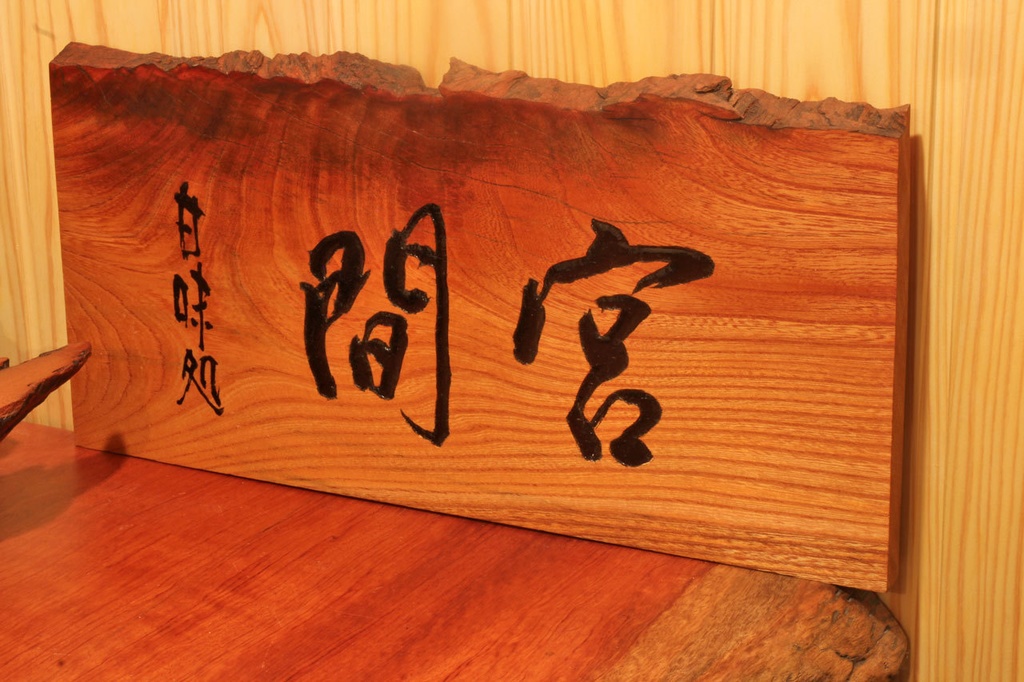 宮間
甘味処